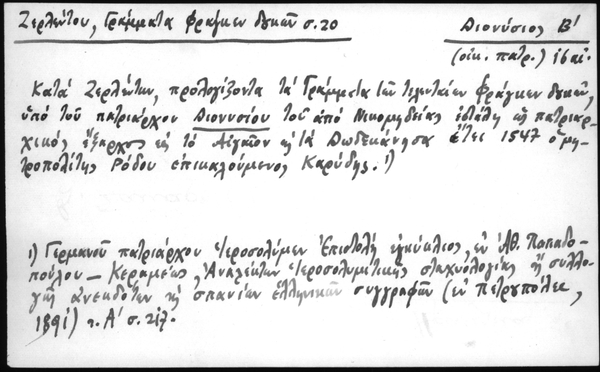 Ζερλέντου, Γράμματα φράγκων δουκῶν σ. 20
Διονύσιος Β′
(οἰκ. πατρ.) 16 αἰ.
Κατά Ζερλέντην, προλογίζοντα τά Γράμματα τῶν τελευταίων φράγκων δουκῶν,
ὑπό τοῦ πατριάρχου Διονυσίου τοῦ ἀπό Νικομηδείας ἐστάλη ὡς πατριαρ-
χικός ἔξαρχος εἰς τό Αἰγαῖον κ τά Δωδεκάνησα ἔτει 1547 ὁ μη-
τροπολίτης Ρόδου ἐπικαλούμενος Καρύδης. 1)
1) Γερμανοῦ πατριάρχου Ἱεροσολύμων Ἐπιστολή ἐγκύκλιος, ἐν Ἀθ. Παπαδο-
πούλου – Κεραμέως, Ἀνάλεκτων Ἱεροσολυμιτικῆς σταχυολογίας ἤ συλλο-
γῆς ἀνεκδότων κ σπανίων ἑλληνικῶν συγγραφῶν (ἐν Πετρουπόλει,
1891) τ. Α′ σ. 217.